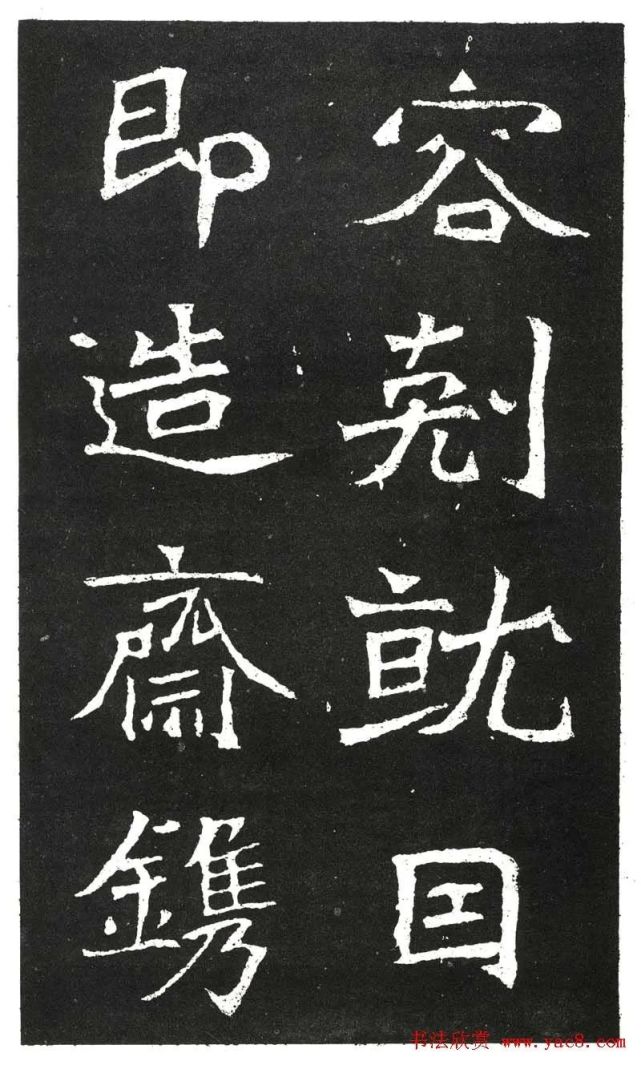 容剋就囙
即造齋鐫
书法欣赏 www.yac8.com